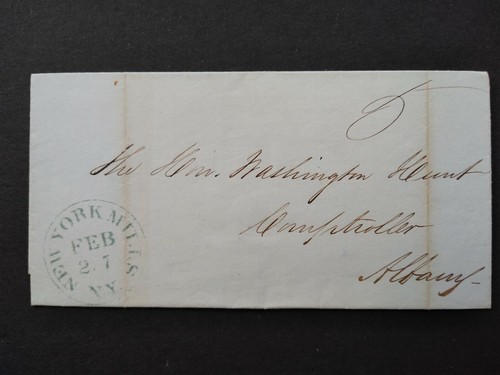 5
The Hon. Washington Hunt
Comptroller
Albany
NEW YORK MILLS
FEB
27
N.Y.